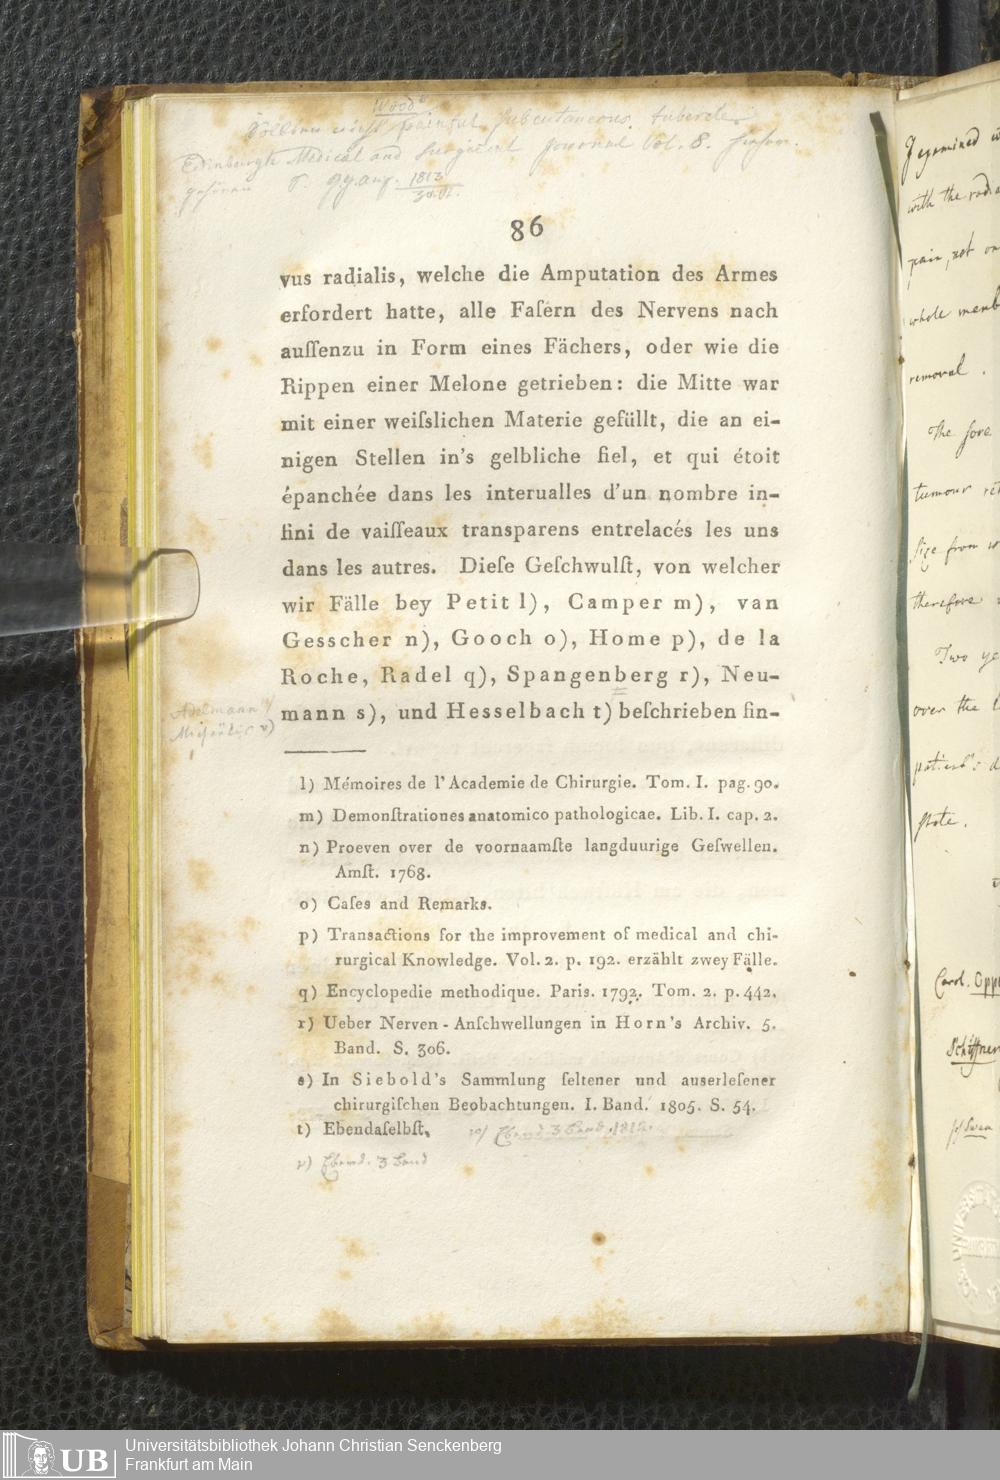 Wood's
Sollten nicht painful subcutaneous tubercles
Edinburgh Medical and Surgical Journal Vol. 8. hieher
gehören 1813
86
vus radialis, welche die Amputation des Armes
erfordert hatte, alle Faſern des Nerven nach
auſſenzu in Form eines Fächers, oder wie die
Rippen einer Melone getrieben: die Mitte war
mit einer weiſslichen Materie gefüllt, die an ei-
nigen Stellen in's gelbliche fiel, et qui étoit
épanchée dans les interualles d'un nombre in-
fini de vaiſſeaux transparens entrelacés les uns
dans les autres. Dieſe Geſchwulſt, von welcher
wir Fälle bey Petit l), Camper m), van
Gesscher n), Gooch o), Home p), de la
Roche, Radel q), Spangenberg r), Neu-
mann s), und Hesselbach t) beſchrieben fin-
Adelmann
l) Mémoires de l'Academie de Chirurgie. Tom. I. pag. 90.
m) Demonſtrationes anatomico pathologicae. Lib. I. cap. 2.
n) Proeven over de voornaamſte langduurige Geſwellen.
Amſt. 1768.
o) Caſes and Remarks.
p) Transactions for the improvement of medical and chi-
rurgical Knowledge. Vol. 2. p. 192. erzählt zwey Fälle.
q) Encyclopedie methodique. Paris. 1792. Tom. 2. p. 442.
r) Ueber Nerven-Anſchwellungen in Horn's Archiv. 5.
Band. S. 306.
s) In Siebold's Sammlung ſeltener und auserleſener
chirurgiſchen Beobachtungen. I. Band. 1805. S. 54.
t) Ebendaſelbſt. Ebend. 3 Band. 1812.
v) Ebend. 3 Band
I examined
with the radi
pain, not on
whole memb
removal.
The fore
tumour
size from
therefore
Two ye
over the
patient's d
state.
Carol. Opp
Schiffner
Swan
UB
Universitätsbibliothek Johann Christian Senckenberg
Frankfurt am Main